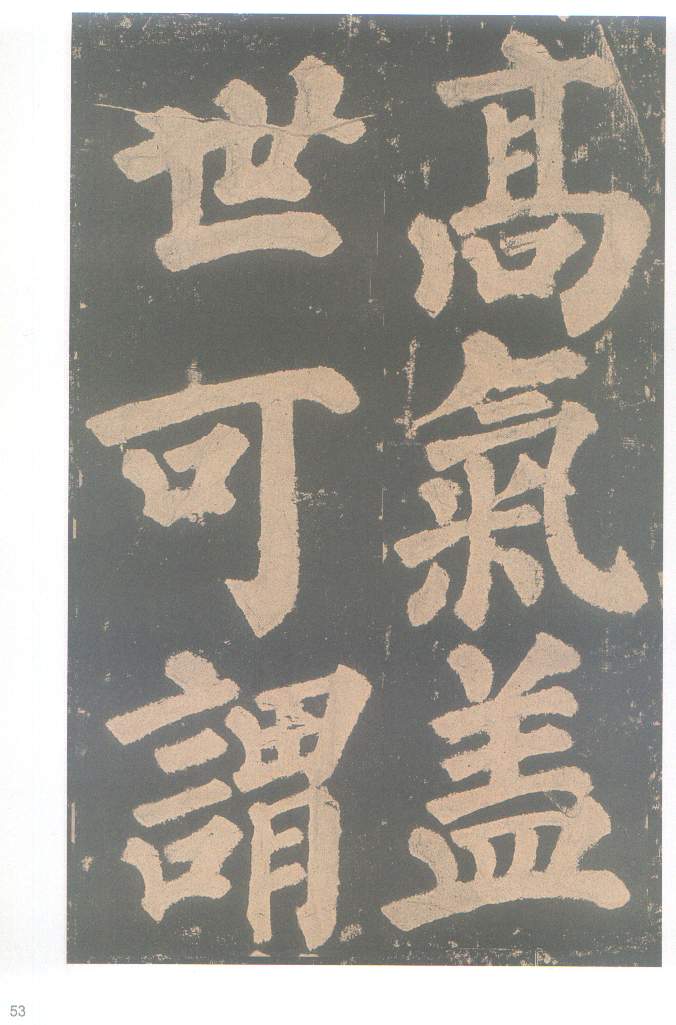 高氣盖
世可謂
53